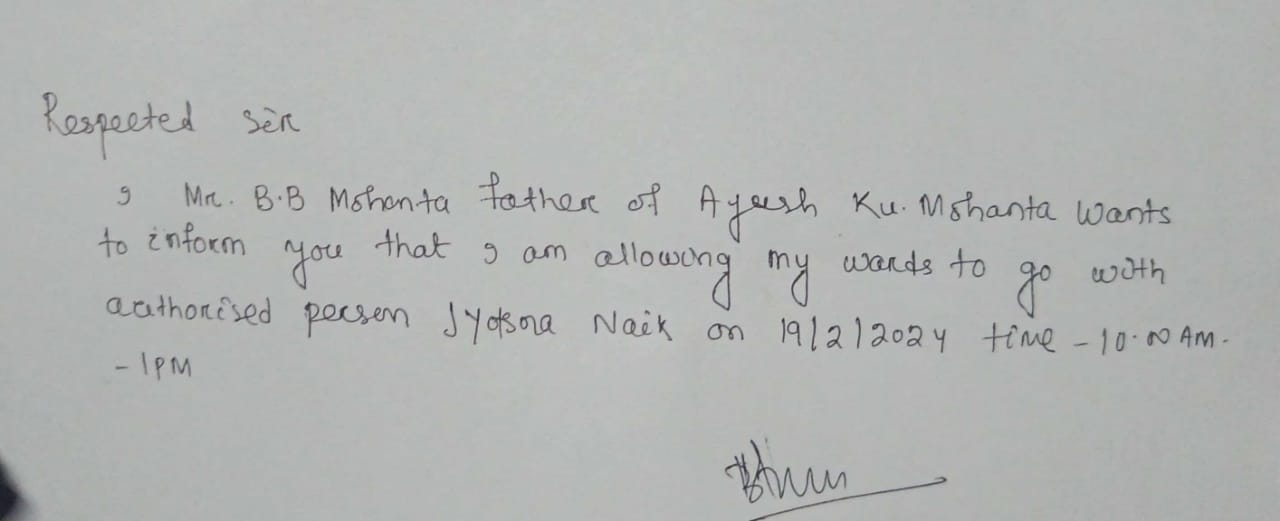 Respected Sir
I Mr. B.B Mohanta father of Ayush Ku. Mohanta wants
to inform you that I am allowing my wards to go with
authorised person Jyotsna Naik on 19/2/2024 time - 10.00 AM.
- 1PM